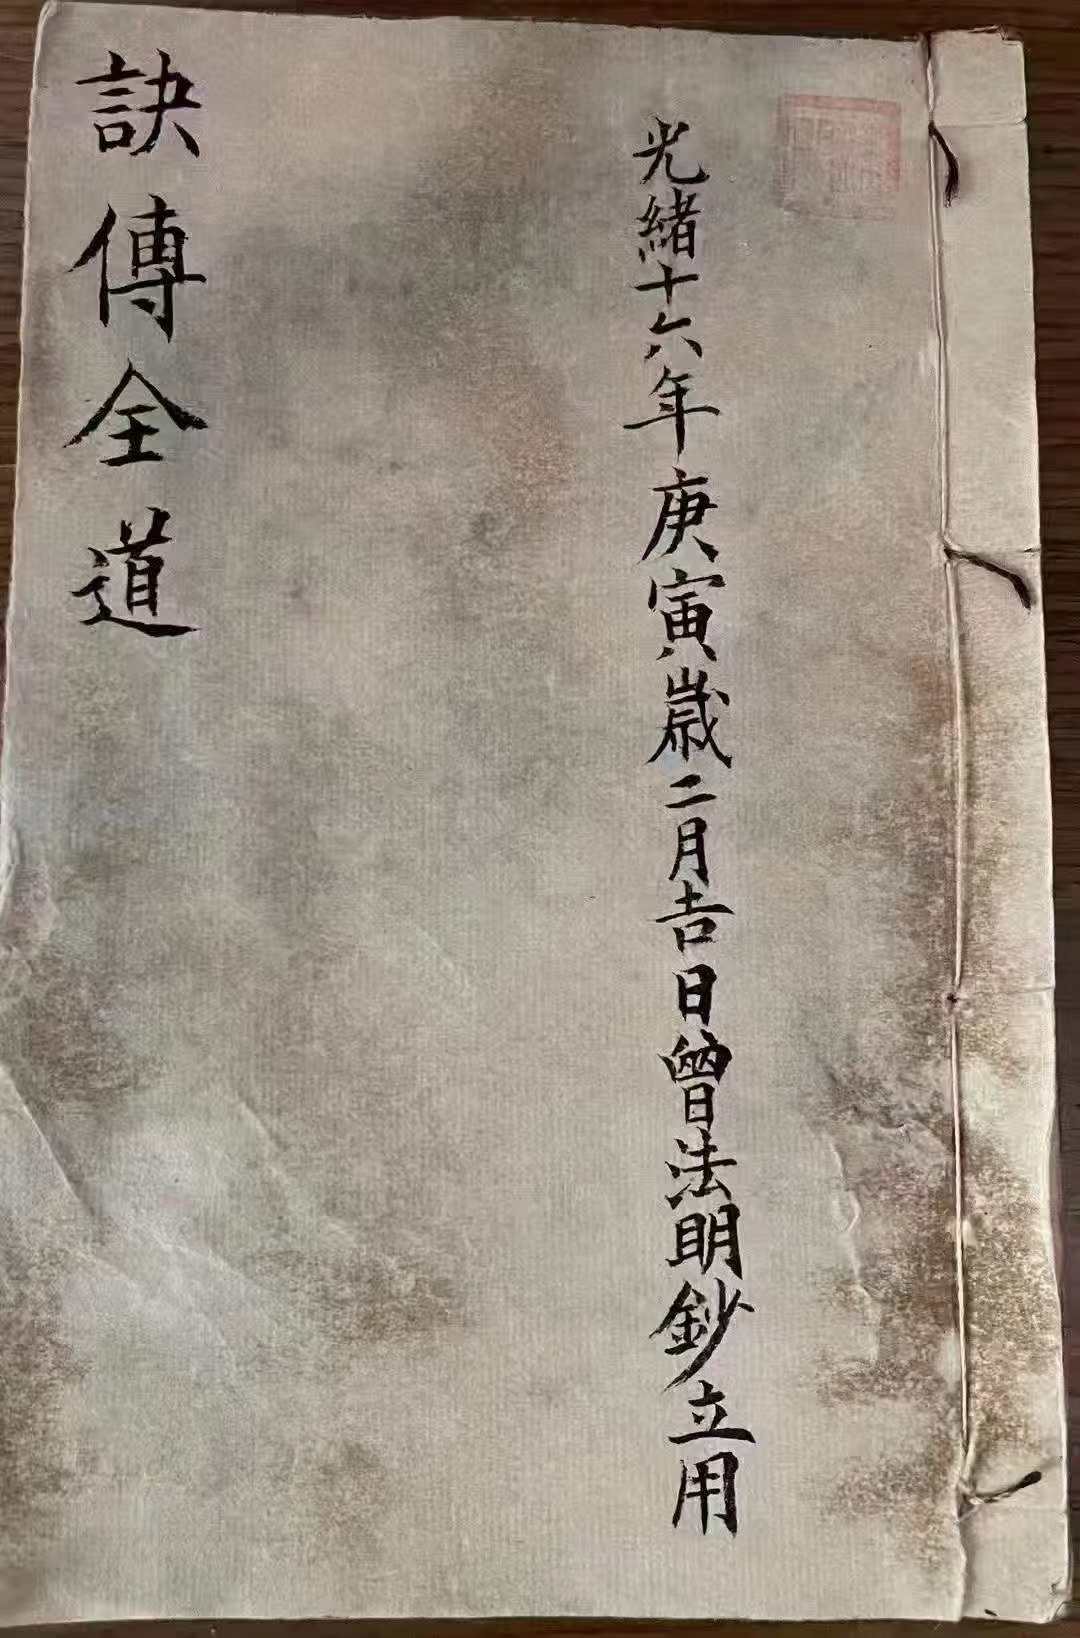 光緒十六年庚寅歲二月吉日曾法明鈔立用
訣傳全道